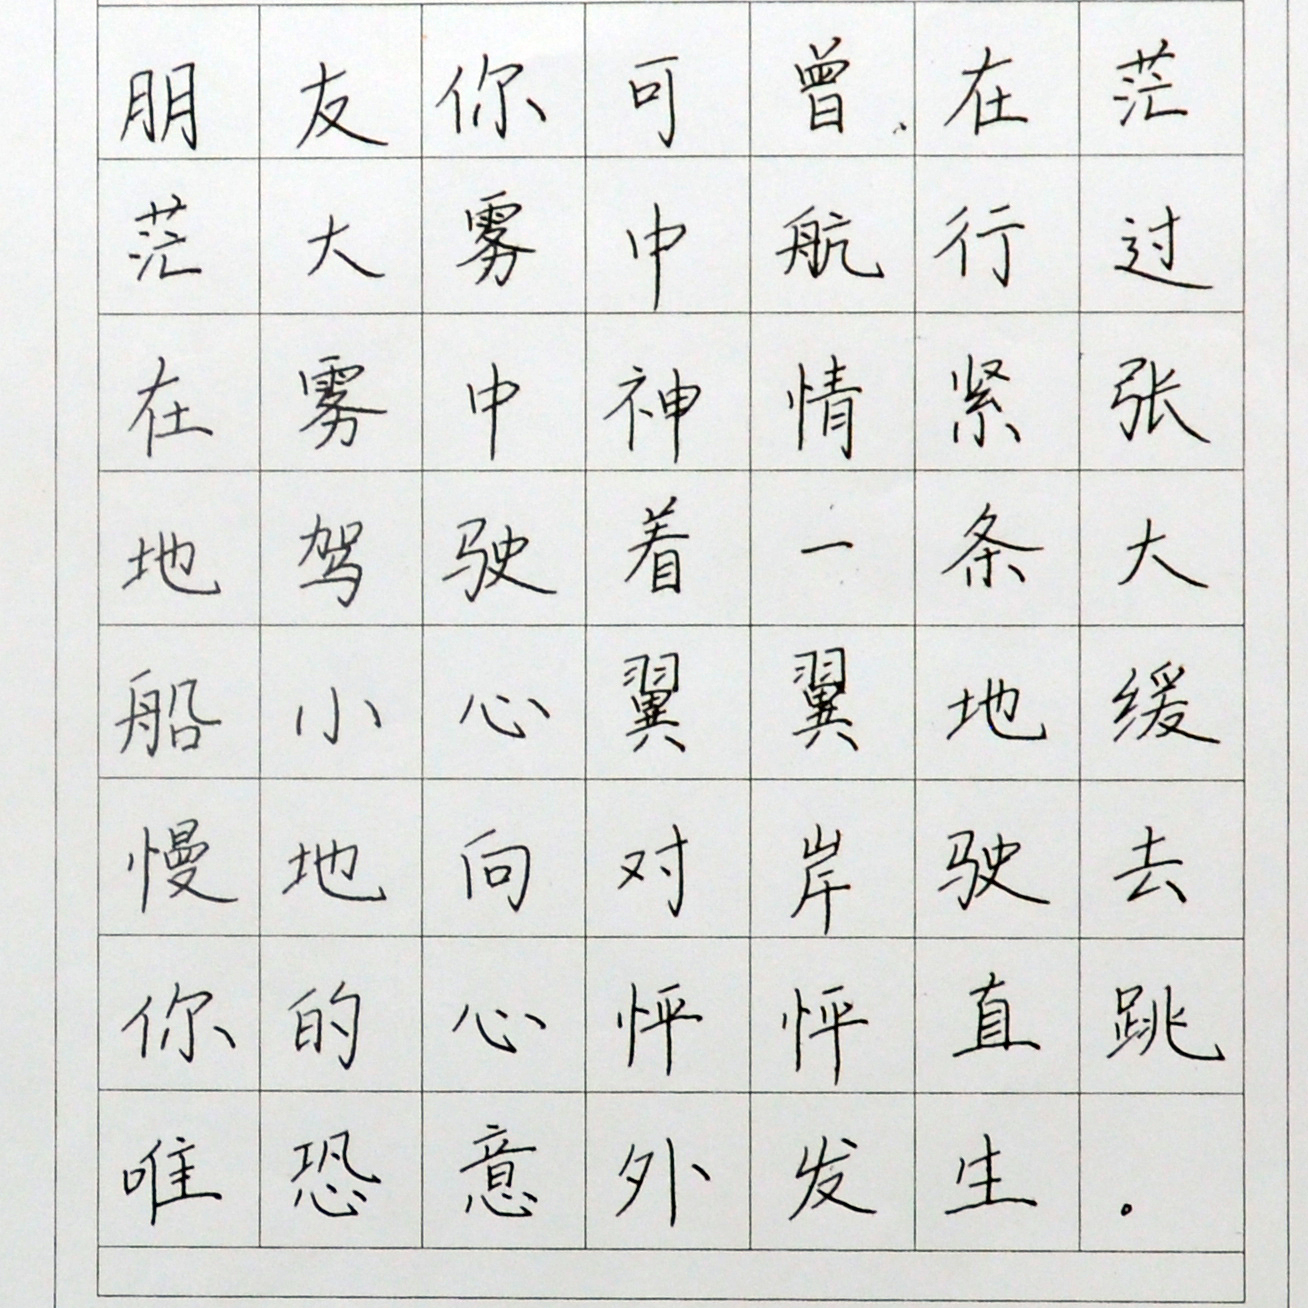 朋友你可曾、在茫
茫大雾中航行过
在雾中神情紧张
地驾驶着一条大
船小心翼翼地缓
慢地向对岸驶去
你的心怦怦直跳
唯恐意外发生.